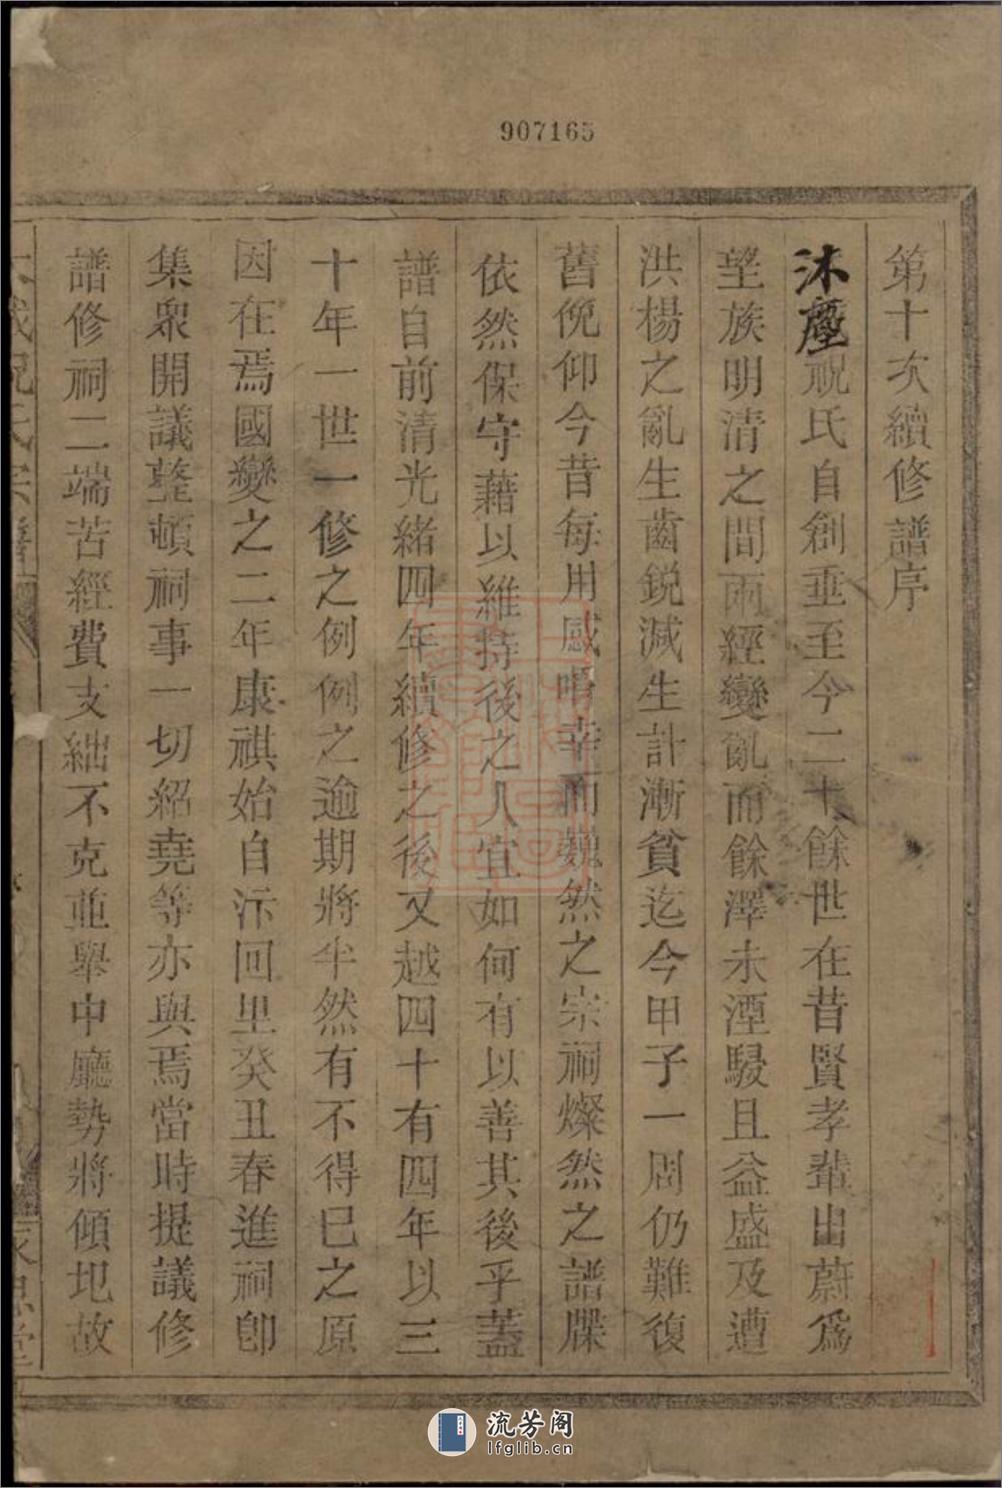 907165
第十次續修譜序
沐塵祝氏自創垂至今二十餘世在昔賢孝輩出蔚爲
望族明清之間兩經變亂而餘澤未湮駸駸且益盛及遭
洪楊之亂生齒銳減生計漸貧迄今甲子一周仍難復
舊俛仰今昔每用感喟幸而巍然之宗祠燦然之譜牒
依然保守藉以維持後之人宜如何有以善其後乎蓋
譜自前清光緒四年續修之後又越四十有四年以三
十年一世一修之例例之逾期將半然有不得已之原
因在焉國變之二年康祺始自汴回里癸丑春進祠卽
集衆開議整頓祠事一切紹堯等亦與焉當時提議修
譜修祠二端苦經費支絀不克並舉中廳勢將傾圯故
祝氏宗譜
流芳阁
lfglib.cn